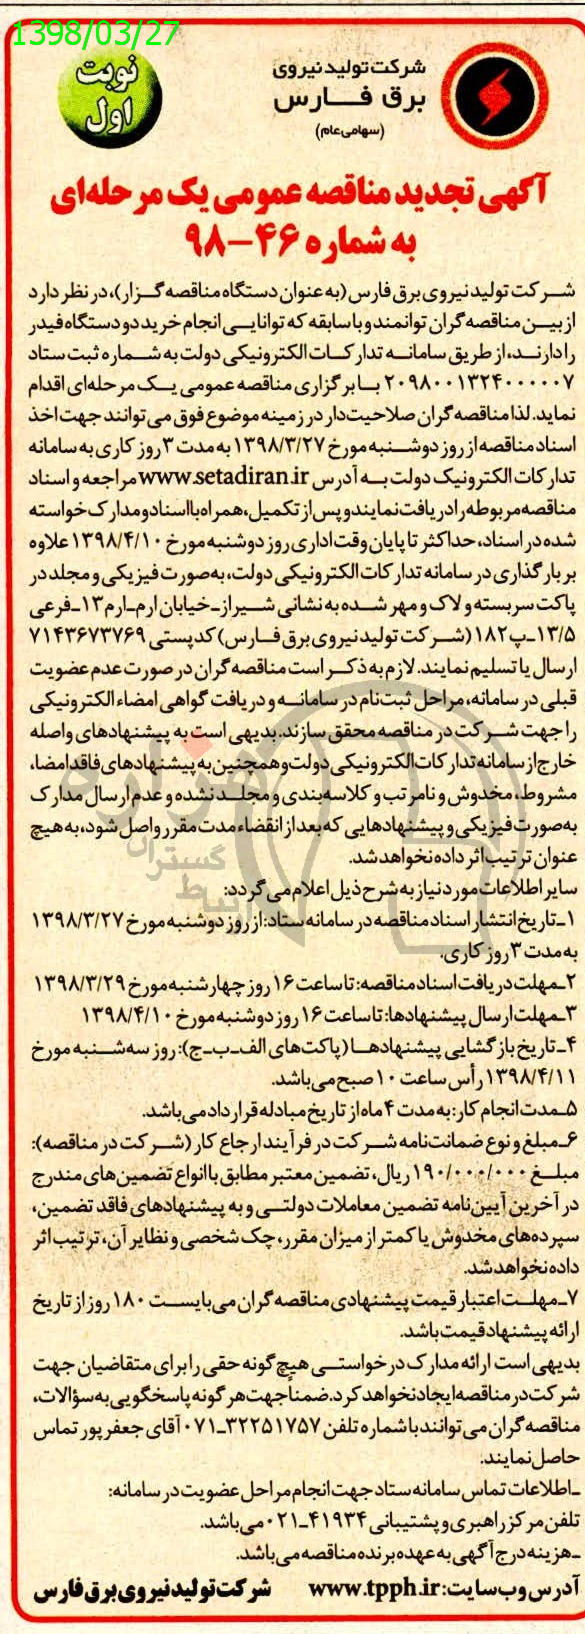 1398/03/27
شرکت تولید نیروی
برق فارس
(سهامی عام)
نوبت
اول
آگهی تجدید مناقصه عمومی یک مرحله‌ای
به شماره ۴۶-۹۸
شرکت تولید نیروی برق فارس (به عنوان دستگاه مناقصه گزار)، در نظر دارد
از بین مناقصه گران توانمند و با سابقه که توانایی انجام خرید دو دستگاه فیدر
را دارند، از طریق سامانه تدارکات الکترونیکی دولت به شماره ثبت ستاد
۲۰۹۸۰۰۱۳۲۴۰۰۰۰۰۷ با برگزاری مناقصه عمومی یک مرحله‌ای اقدام
نماید. لذا مناقصه گران صلاحیت‌دار در زمینه موضوع فوق می‌توانند جهت اخذ
اسناد مناقصه از روز دوشنبه مورخ ۱۳۹۸/۳/۲۷ به مدت ۳ روز کاری به سامانه
تدارکات الکترونیک دولت به آدرس www.setadiran.ir مراجعه و اسناد
مناقصه مربوطه را دریافت نمایند و پس از تکمیل، همراه با اسناد و مدارک خواسته
شده در اسناد، حداکثر تا پایان وقت اداری روز دوشنبه مورخ ۱۳۹۸/۴/۱۰ علاوه
بر بارگذاری در سامانه تدارکات الکترونیکی دولت، به‌صورت فیزیکی و مجلد در
پاکت سربسته و لاک و مهر شده به نشانی شیراز-خیابان ارم-ارم۱۳-فرعی
۱۳/۵-پ۱۸۲ (شرکت تولید نیروی برق فارس) کدپستی ۷۱۴۳۶۷۳۷۶۹
ارسال یا تسلیم نمایند. لازم به ذکر است مناقصه گران در صورت عدم عضویت
قبلی در سامانه، مراحل ثبت‌نام در سامانه و دریافت گواهی امضاء الکترونیکی
را جهت شرکت در مناقصه محقق سازند. بدیهی است به پیشنهادهای واصله
خارج از سامانه تدارکات الکترونیکی دولت و همچنین به پیشنهادهای فاقد امضا،
مشروط، مخدوش و نامرتب و کلاسه‌بندی و مجلد نشده و عدم ارسال مدارک
به‌صورت فیزیکی و پیشنهادهایی که بعد از انقضاء مدت مقرر واصل شود، به هیچ
عنوان ترتیب اثر داده نخواهد شد.
سایر اطلاعات مورد نیاز به شرح ذیل اعلام می گردد:
۱-تاریخ انتشار اسناد مناقصه در سامانه ستاد: از روز دوشنبه مورخ ۱۳۹۸/۳/۲۷
به مدت ۳ روز کاری.
۲-مهلت دریافت اسناد مناقصه: تا ساعت ۱۶ روز چهارشنبه مورخ ۱۳۹۸/۳/۲۹
۳-مهلت ارسال پیشنهادها: تا ساعت ۱۶ روز دوشنبه مورخ ۱۳۹۸/۴/۱۰
۴-تاریخ بازگشایی پیشنهادها (پاکت‌های الف-ب-ج): روز سه‌شنبه مورخ
۱۳۹۸/۴/۱۱ رأس ساعت ۱۰ صبح می‌باشد.
۵-مدت انجام کار: به مدت ۴ ماه از تاریخ مبادله قرارداد می‌باشد.
۶-مبلغ و نوع ضمانت‌نامه شرکت در فرآیند ارجاع کار (شرکت در مناقصه):
مبلغ ۱۹۰/۰۰۰/۰۰۰ ریال، تضمین معتبر مطابق با انواع تضمین های مندرج
در آخرین آیین‌نامه تضمین معاملات دولتی و به پیشنهادهای فاقد تضمین،
سپرده‌های مخدوش یا کمتر از میزان مقرر، چک شخصی و نظایر آن، ترتیب اثر
داده نخواهد شد.
۷-مهلت اعتبار قیمت پیشنهادی مناقصه گران می‌بایست ۱۸۰ روز از تاریخ
ارائه پیشنهاد قیمت باشد.
بدیهی است ارائه مدارک درخواستی هیچ گونه حقی را برای متقاضیان جهت
شرکت در مناقصه ایجاد نخواهد کرد. ضمناً جهت هر گونه پاسخگویی به سؤالات،
مناقصه گران می‌توانند با شماره تلفن ۳۲۲۵۱۷۵۷-۰۷۱ آقای جعفرپور تماس
حاصل نمایند.
-اطلاعات تماس سامانه ستاد جهت انجام مراحل عضویت در سامانه:
تلفن مرکز راهبری و پشتیبانی ۴۱۹۳۴-۰۲۱ می‌باشد.
-هزینه درج آگهی به عهده برنده مناقصه می‌باشد.
آدرس وب سایت: www.tpph.ir شرکت تولید نیروی برق فارس
هزاره
گستران
ارتباط